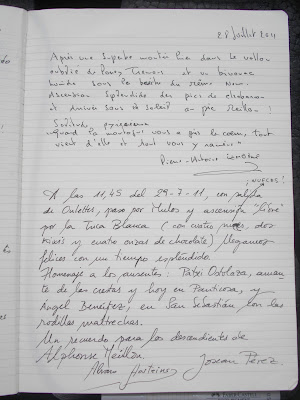 28 Juillet 2011
Après une superbe montée hier dans le vallon
oublié de Pouey Trenous et un bivouac
humide sous la barre du même nom.
Ascension splendide des pics de
et arrivée sous ce soleil au pic Meillon!
Solitude, pyrénéenne
"Quand la montagne vous a pris le coeur, tout
vient d'elle et tout vous y ramène"
Pierre-Antoine
¡NUECES!
A las 11,45 del 29-7-11, con salida
de Oulettes, paso por Mulos y ascensión "libre"
por la Tuca Blanca (con cuatro , dos
kiwis y cuatro onzas de chocolate) llegamos
felices con un tiempo espléndido.
Homenaje a los ausentes: Patxi Odolaza, aman
te de las crestas y hoy en Panticosa, y
Angel Beneitez, en San Sebastián con las
rodillas maltrechas.
Un recuerdo para los descendientes de
Alphonse Meillon.
Alvaro Josean Pérez